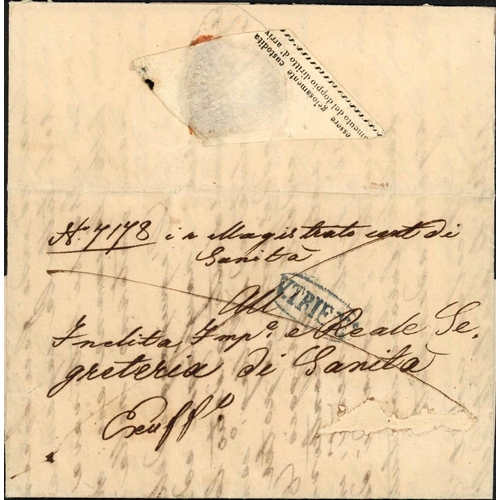 essere gelosamente custodita
amento del doppio diritto d' arriv
N. 7178 i r Magistrato cent di
Sanità
V. TRIEST
All
Inclita Imp.e e Reale Se,
greteria di Sanità